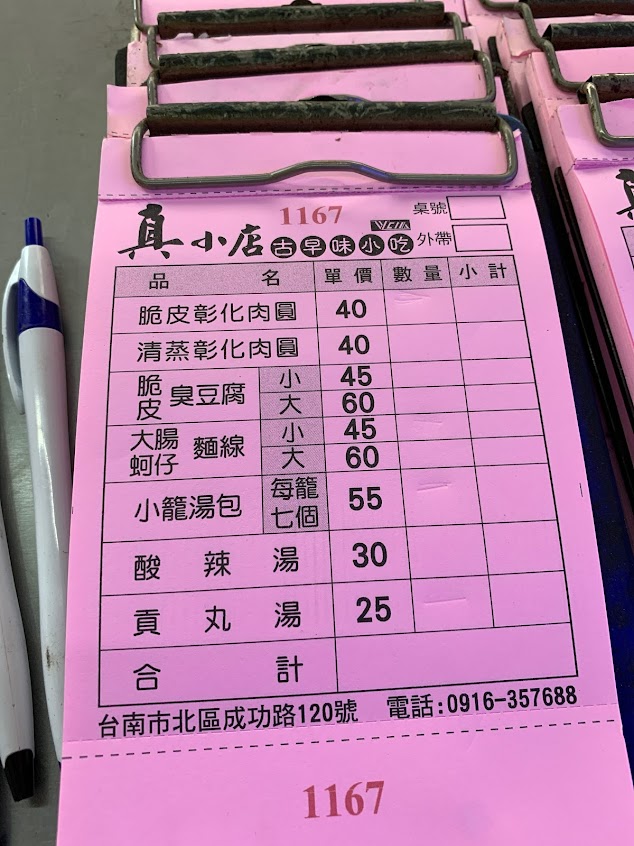 1167
桌號
真小店 古早味小吃 外帶
品名 單價 數量 小計
脆皮彰化肉圓 40
清蒸彰化肉圓 40
脆皮臭豆腐 小 45
大 60
大腸蚵仔麵線 小 45
大 60
小籠湯包 每籠七個 55
酸辣湯 30
貢丸湯 25
合計
台南市北區成功路120號 電話:0916-357688
1167